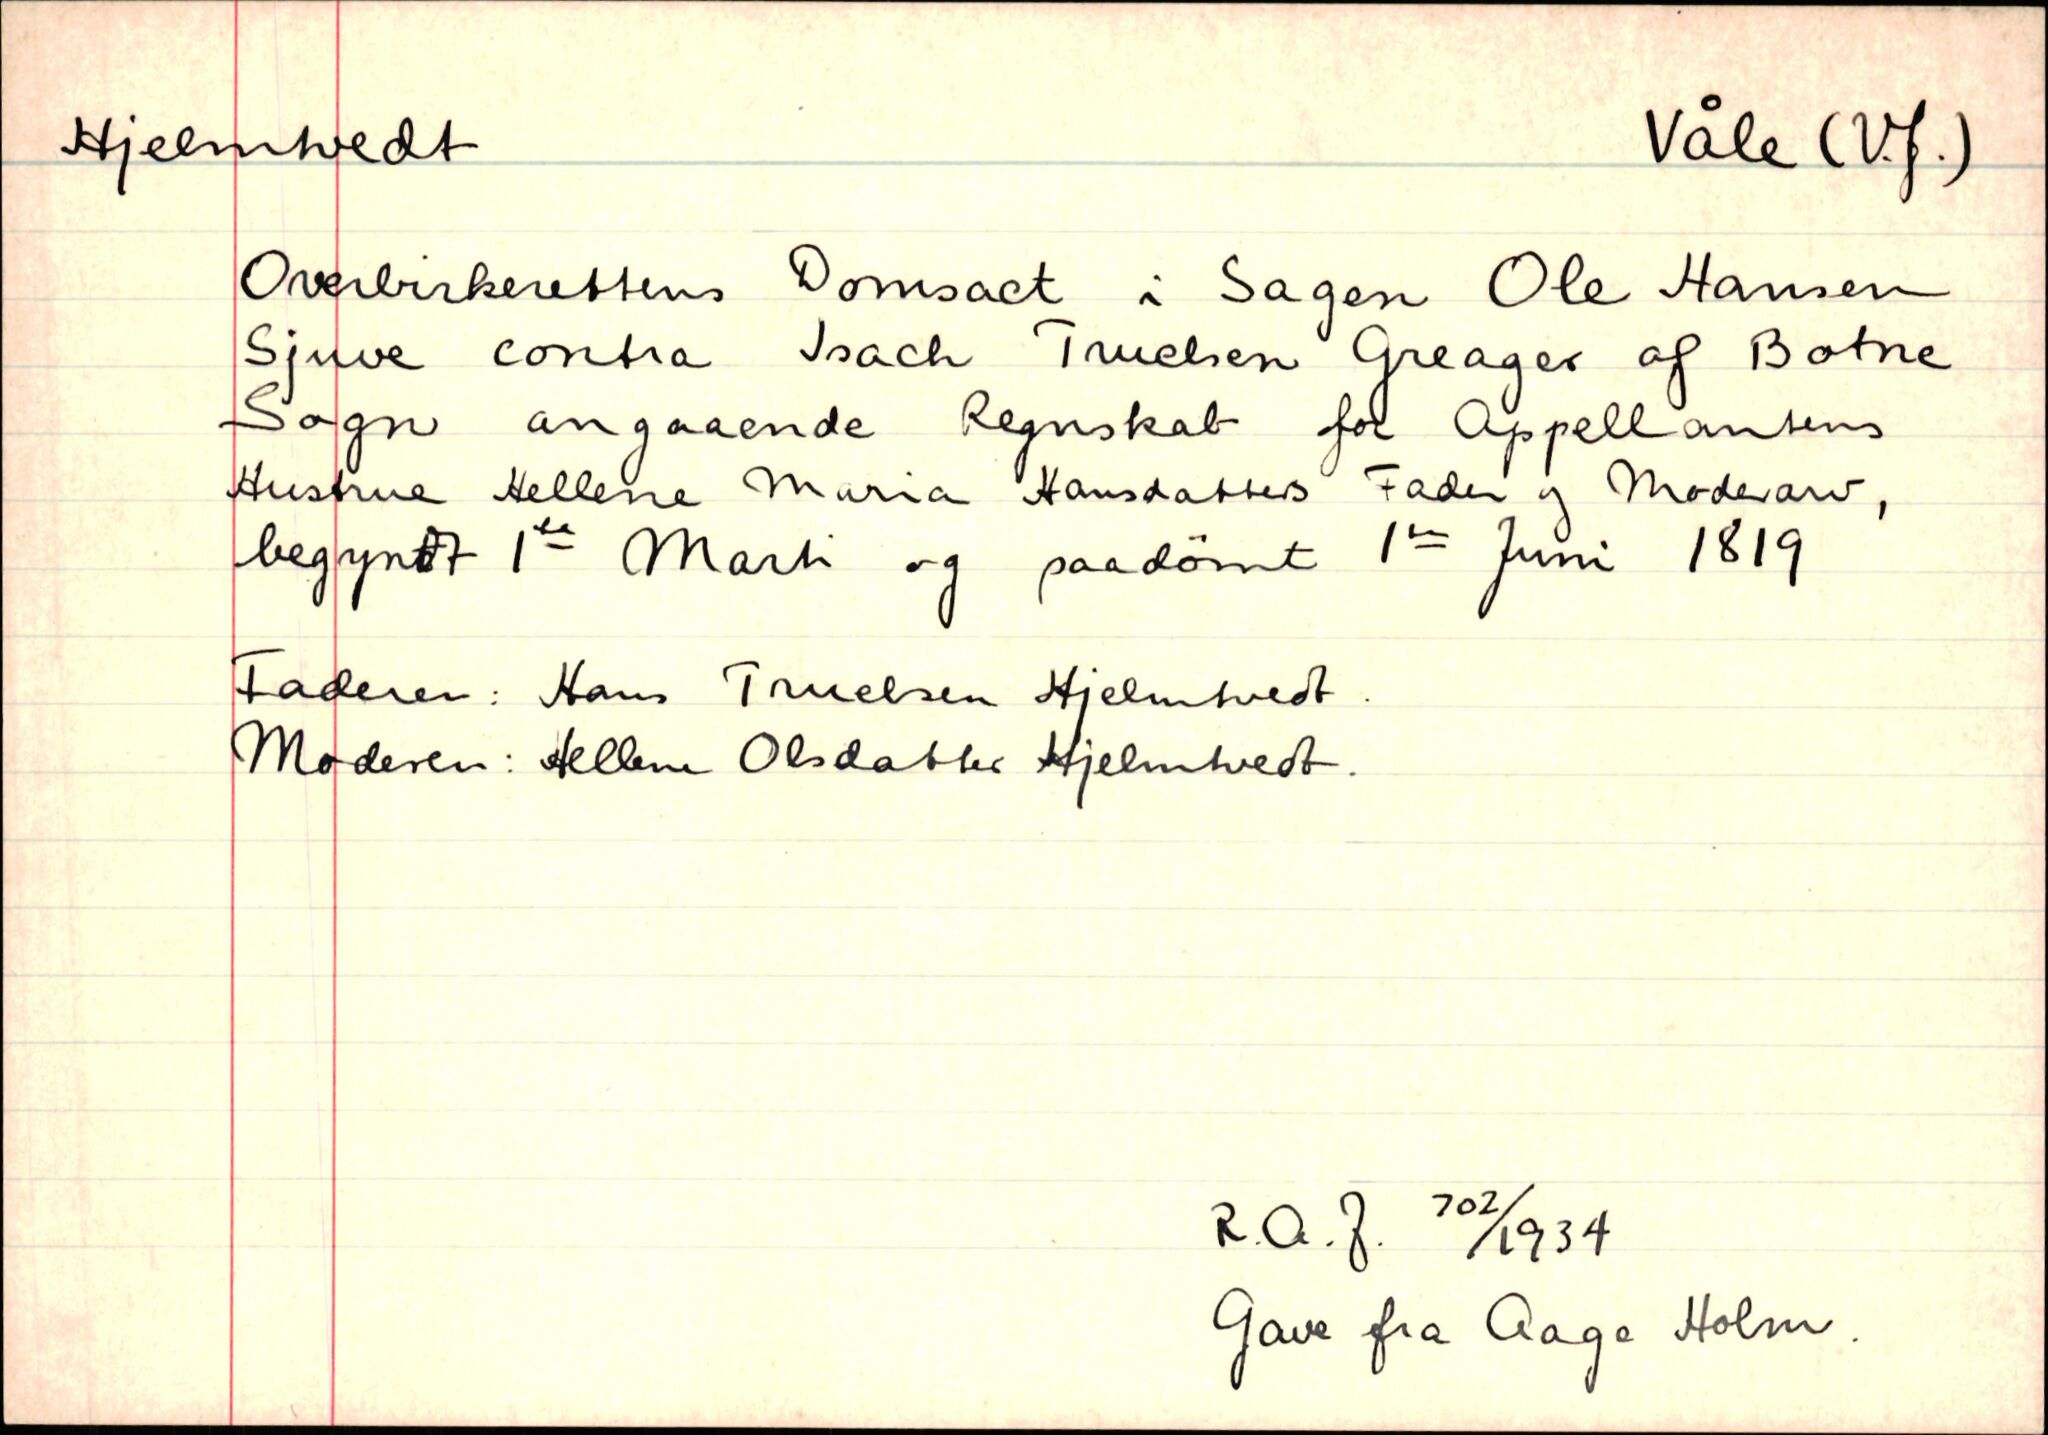 Hjelmtvedt Våle (V.f.)
Overbirkerettens Domsact i Sagen Ole Hansen
Sjuve contra Isach Truelsen Greager af Botne
Sogn angaaende Regnskab for Appellantens
Hustrue Hellene Maria Hansdatters Fader og Moderarv,
begyndt 1te Marti og paadömt 1te Juni 1819
Faderen: Hans Truelsen Hjelmtvedt.
Moderen: Hellene Olsdatter Hjelmtvedt.
R.A.J. 702/1934
Gave fra Aage Holm.